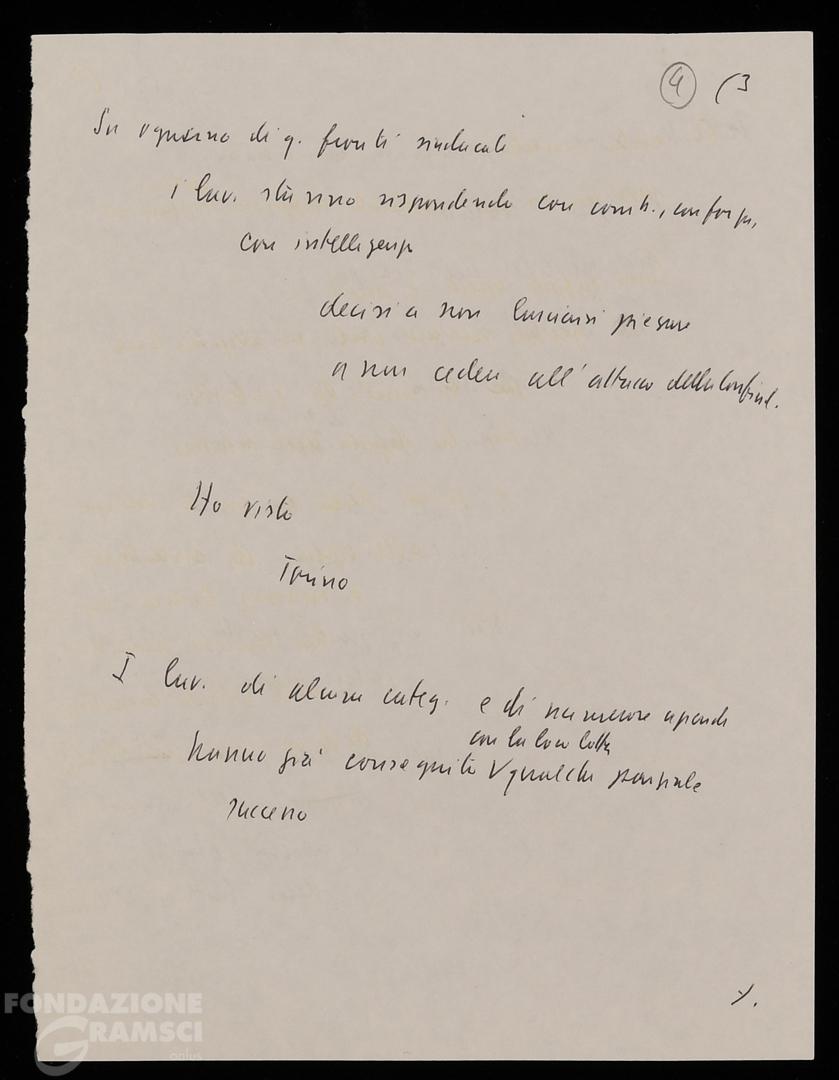 4 (3
Su ognuno di q. fronti sindacali
i lav. stanno rispondendo con comb., con forza,
con intelligenza
decisi a non lasciarsi piegare
a non cedere all'attacco della Confind.
Ho visto
Torino
I lav. di alcune categ. e di numerose aziende
con la loro lotta
hanno già conseguito V qualche parziale
successo
FONDAZIONE
GRAMSCI
onlus